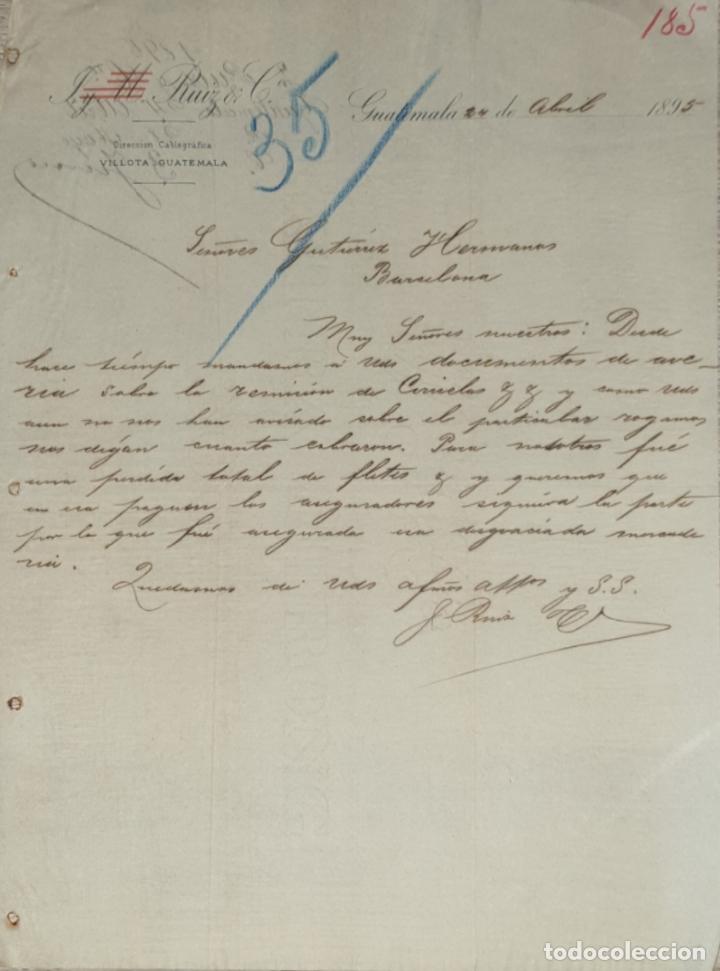 185
J. y M. Ruiz & C.
35
Guatemala 24 de Abril 1895
Dirección Cablegráfica
VILLOTA GUATEMALA
Señores Gutiérrez Hermanos
Barcelona
Muy Señores nuestros: Desde
hace tiempo mandamos á Uds documentos de ave-
ria sobre la remisión de Ciruelas & & y como Uds
aun no nos han avisado sobre el particular rogamos
nos digan cuanto cobraron. Para nosotros fué
una perdida total de fletes & y queremos que
paguen los aseguradores siquiera la parte
por la que fué asegurada esa desgraciada mercade
ria.
Quedamos de Uds afmos attos y S.S.
J. Ruiz & C
todocoleccion